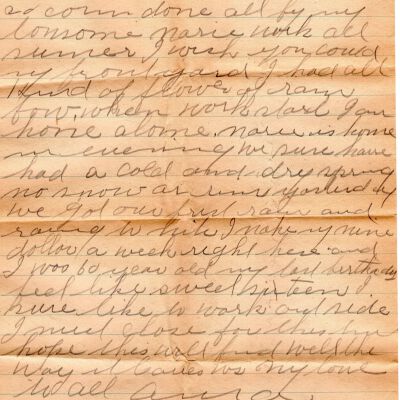 corn done all by my
lonsome marie work all
sumer I wish you could
my front yard I had all
kind of flower of rain
bow. when work start I am
home alome. marie is home
in evening we sure have
had a cold and dry spring
no snow or rain yesterday
we got our first rain and
raning to nite I make my nine
dollar a week right here and
I was 60 year old my last birthday
feel like sweet sixteen I
sure like to work out side
I must close for this time
hope this will find well the
way it leaves us my love
to all